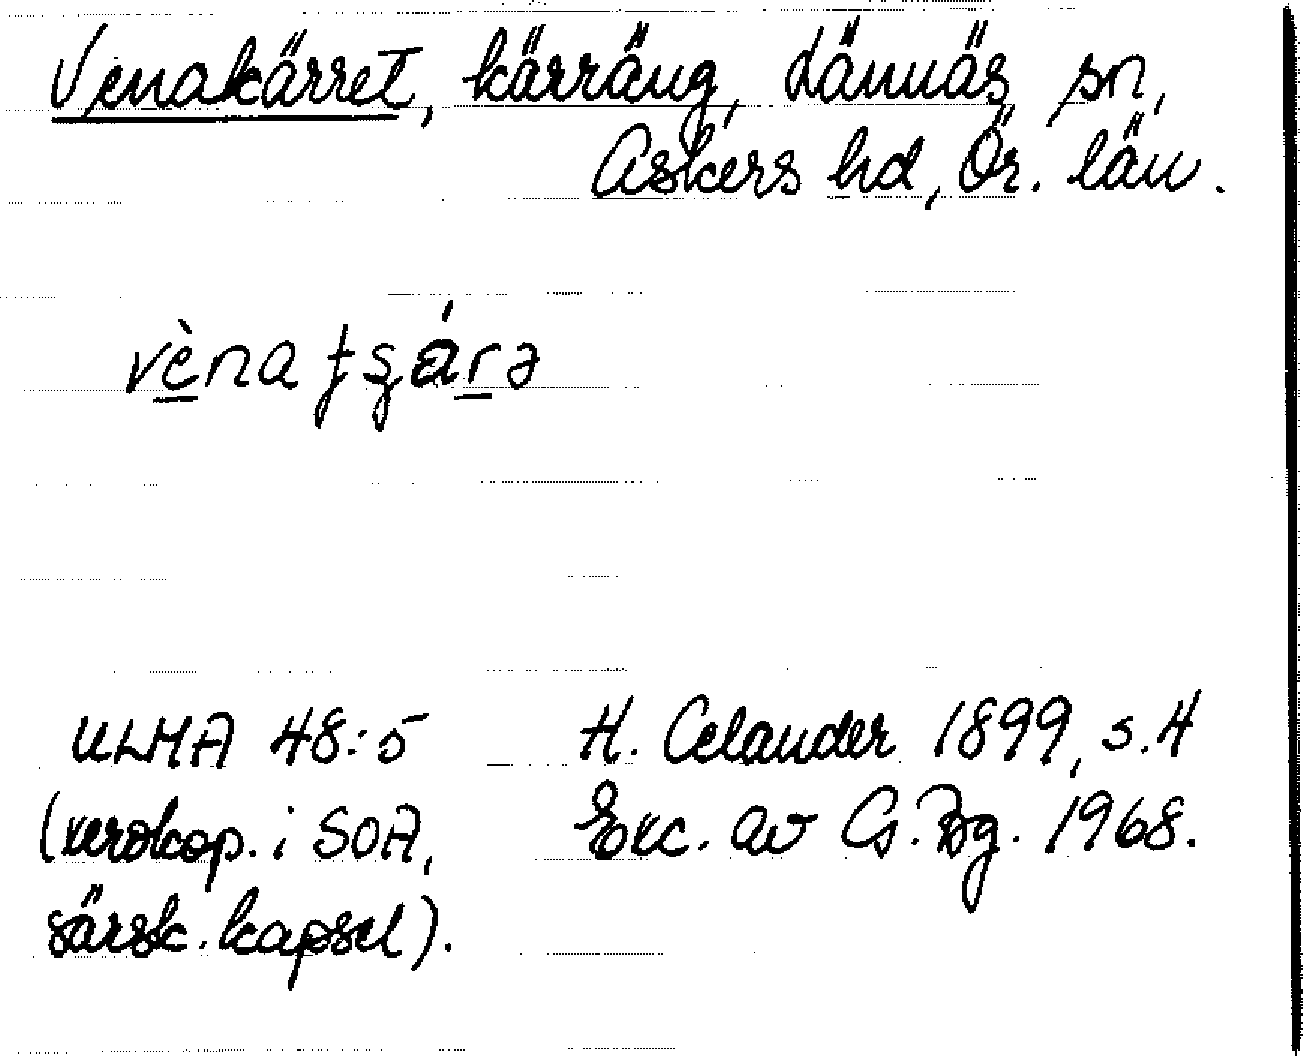 Venakärret, kärräng, Lännäs sn,
Askers hd, Ör. län.
vèna ɟʂárə
ULMA 48:5 H. Celander 1899, s. 4
(xerokop. i SOA, Exc. av G. Bg. 1968.
särsk. kapsel).